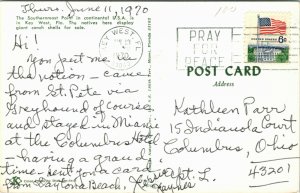 Thurs. June 11, 1970
The Southernmost Point in continental U.S.A. is
in Key West, Fla. The natives here display
giant conch shells for sale.
KEY WEST, FL
PRAY
FOR
PEACE
UNITED STATES 6c
POST CARD
Address
Hi!
you just put me
the notion - came
from St. Pete via
Greyhound of course
and stayed in Miami
at the Columbus Hotel
- having a grand
time - sent you a card
Daytona Beach,
Kathleen Parr
15 Indianola Court
Columbus, Ohio
43201